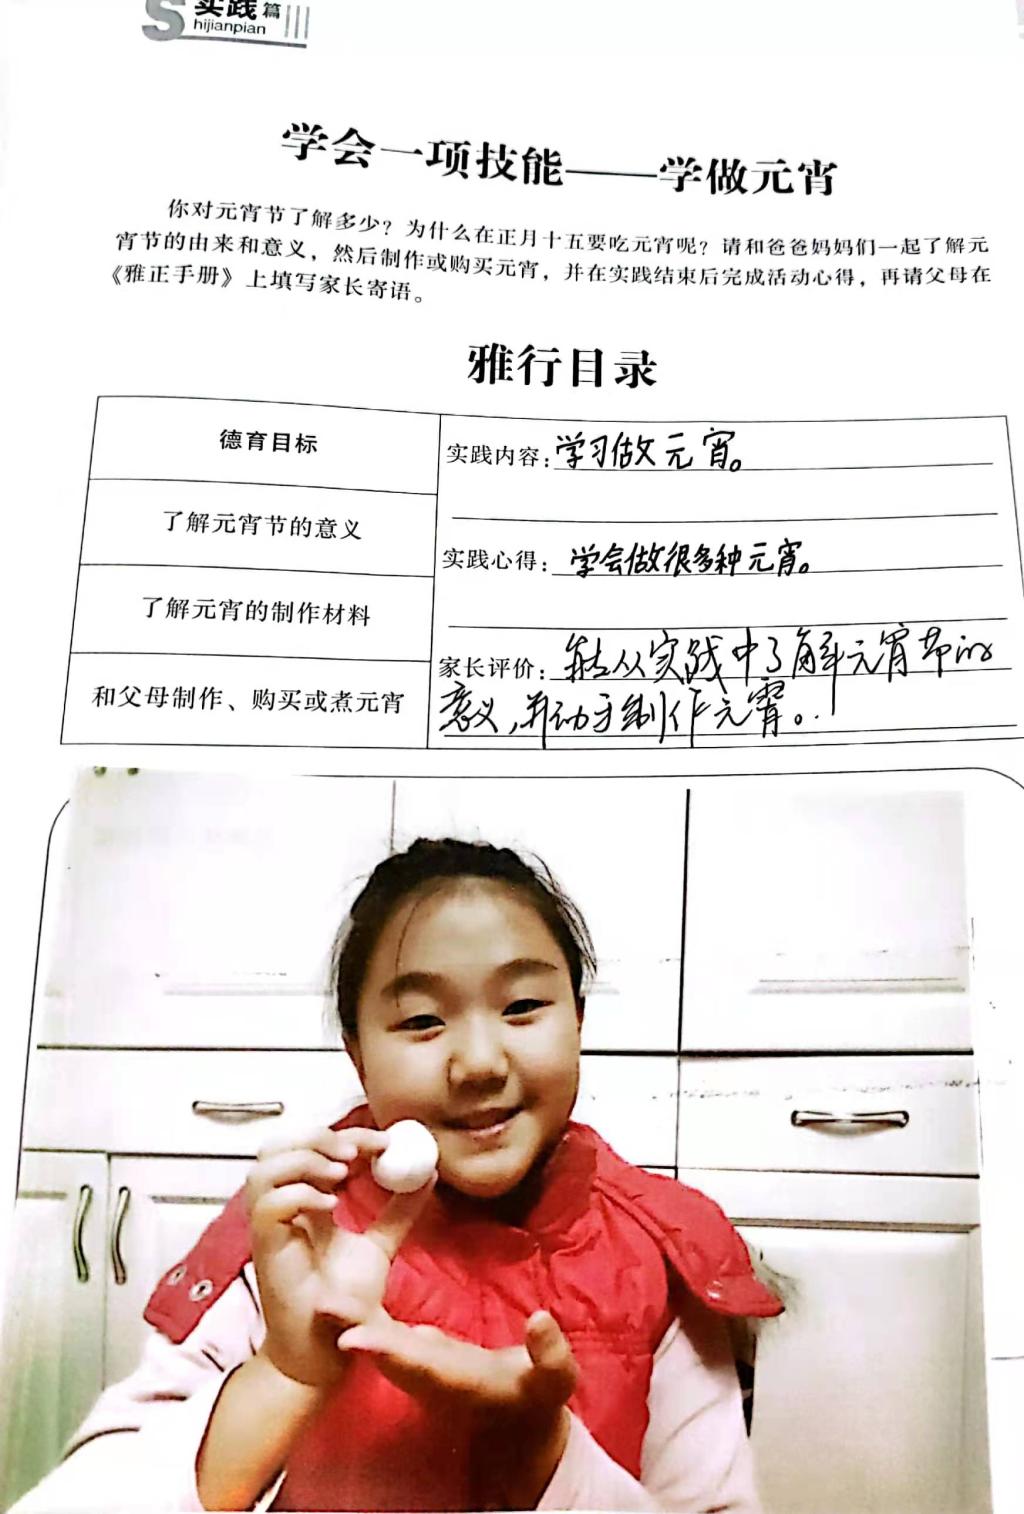 S 实践篇
hijianpian
学会一项技能——学做元宵
你对元宵节了解多少？为什么在正月十五要吃元宵呢？请和爸爸妈妈们一起了解元
宵节的由来和意义，然后制作或购买元宵，并在实践结束后完成活动心得，再请父母在
《雅正手册》上填写家长寄语。
雅行目录
德育目标
了解元宵节的意义
了解元宵的制作材料
和父母制作、购买或煮元宵
实践内容：学习做元宵。
实践心得：学会做很多种元宵。
家长评价：能从实践中了解元宵节的
意义，并动手制作元宵。